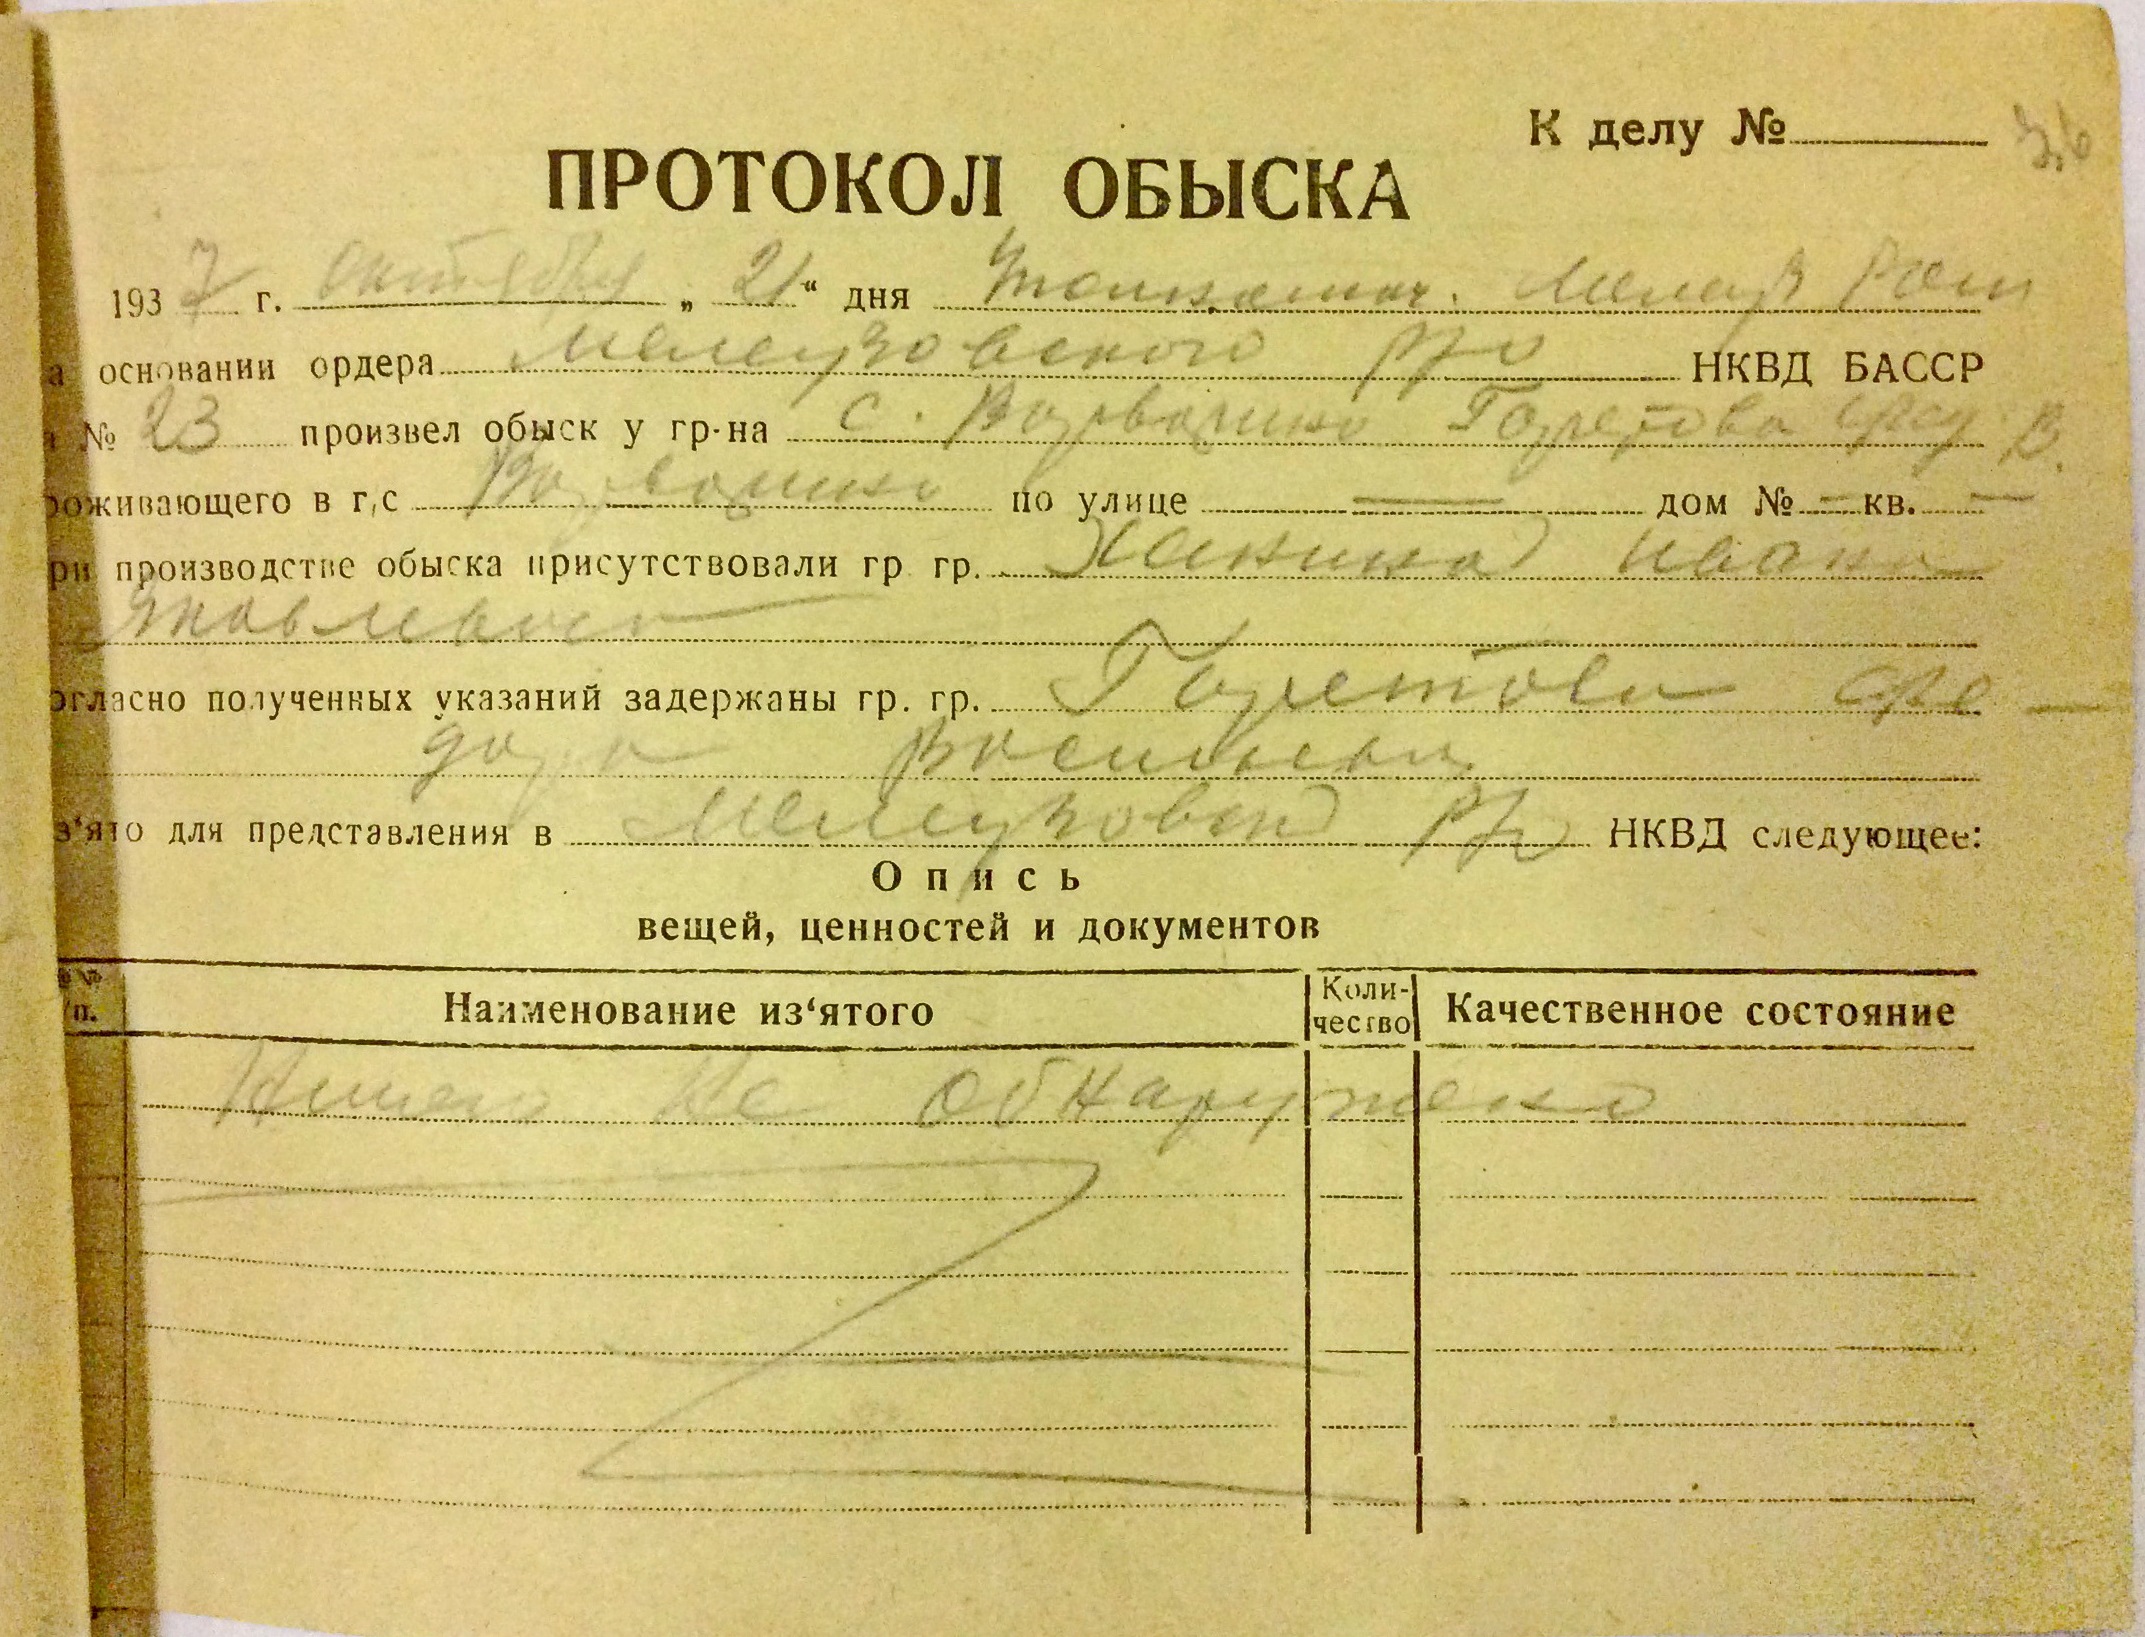 К делу №
ПРОТОКОЛ ОБЫСКА
1937 г. октября „ 21 “ дня
а основании ордера Мелеузовского РО НКВД БАССР
№ 23 произвел обыск у гр-на с. Варварино Горетова Фед В.
роживающего в г,с Варварино по улице = дом № = кв. =
ри производстве обыска присутствовали гр гр. Ханина Ивана
Яковлевича
огласно полученных указаний задержаны гр. гр. Горетова Фе-
дора Васильев.
з‘ято для представления в Мелеузовский РО НКВД следующее:
Опись
вещей, ценностей и документов
п. Наименование из‘ятого Количество Качественное состояние
Ничего не обнаружено